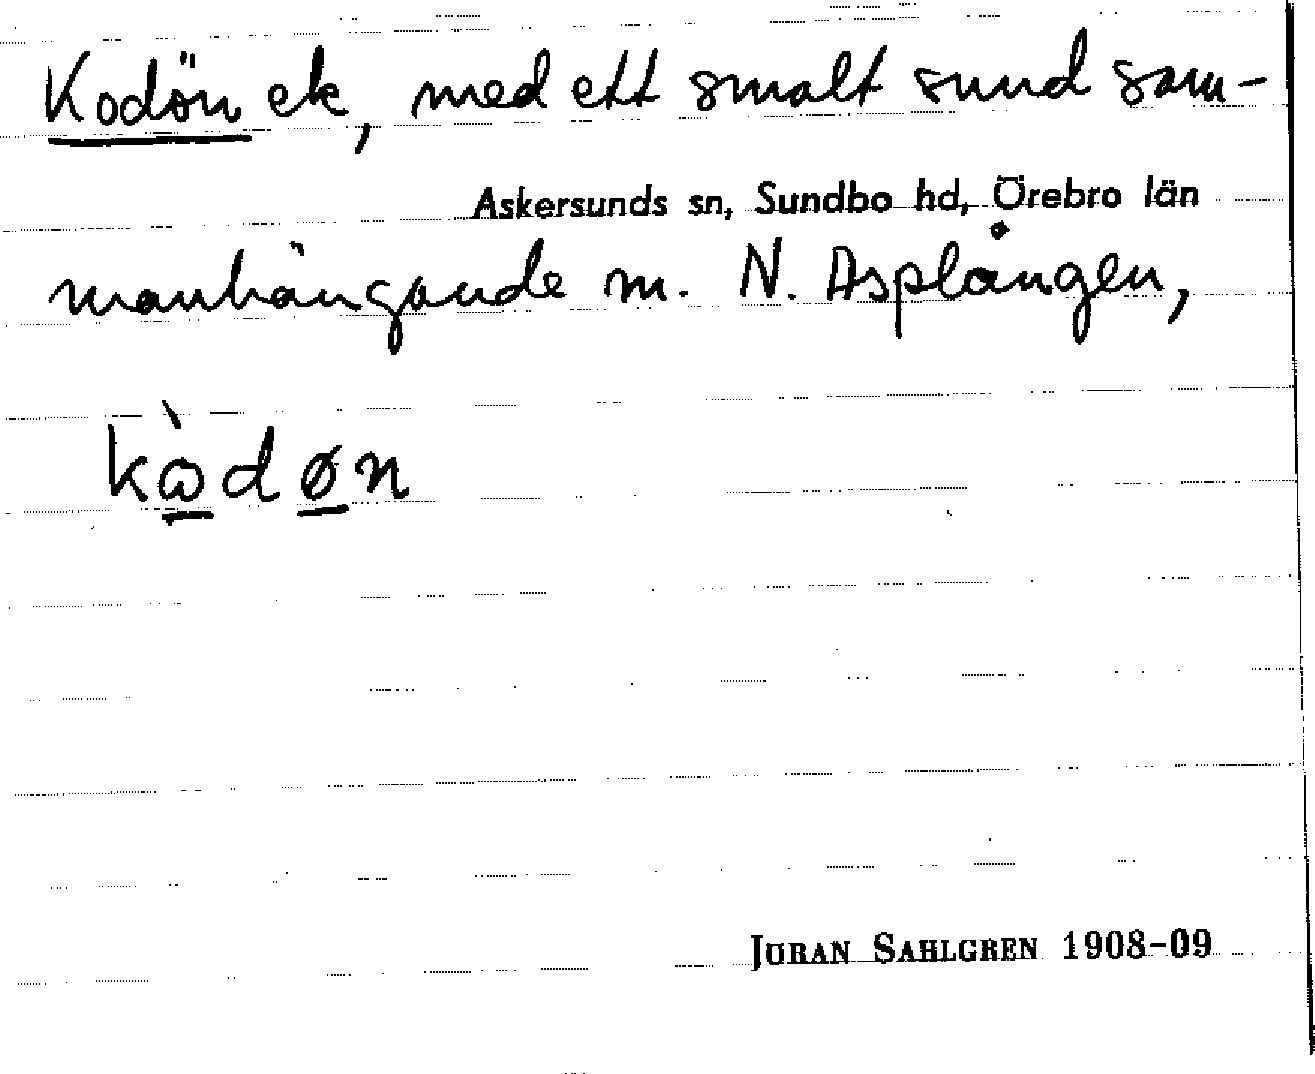 Kodön ek, med ett smalt sund sam-
Askersunds sn, Sundbo hd, Örebro län
manhängande m. N. Asplången,
kὼdøn
JÖRAN SAHLGREN 1908-09